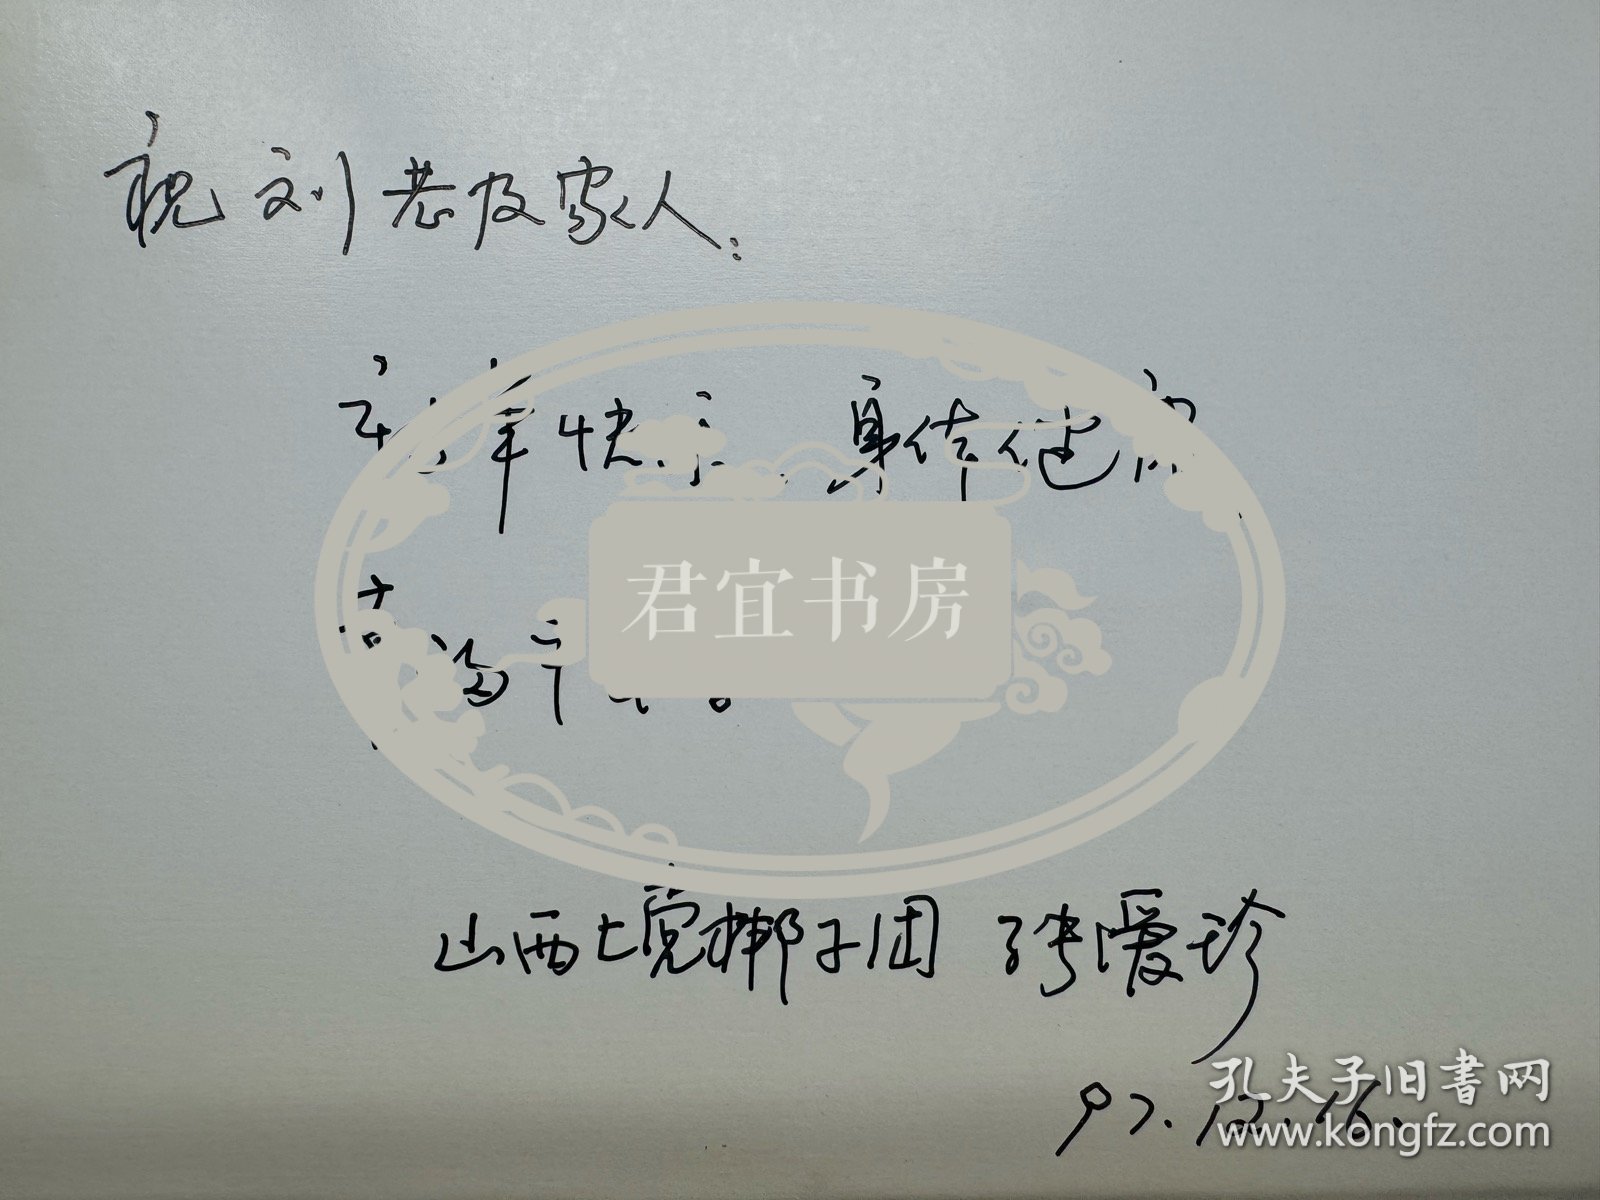 祝刘老及家人:
新年快乐 身体健康
幸福平
君宜书房
山西上党梆子团 张爱珍
孔夫子旧书网
97.12.16.
www.kongfz.com